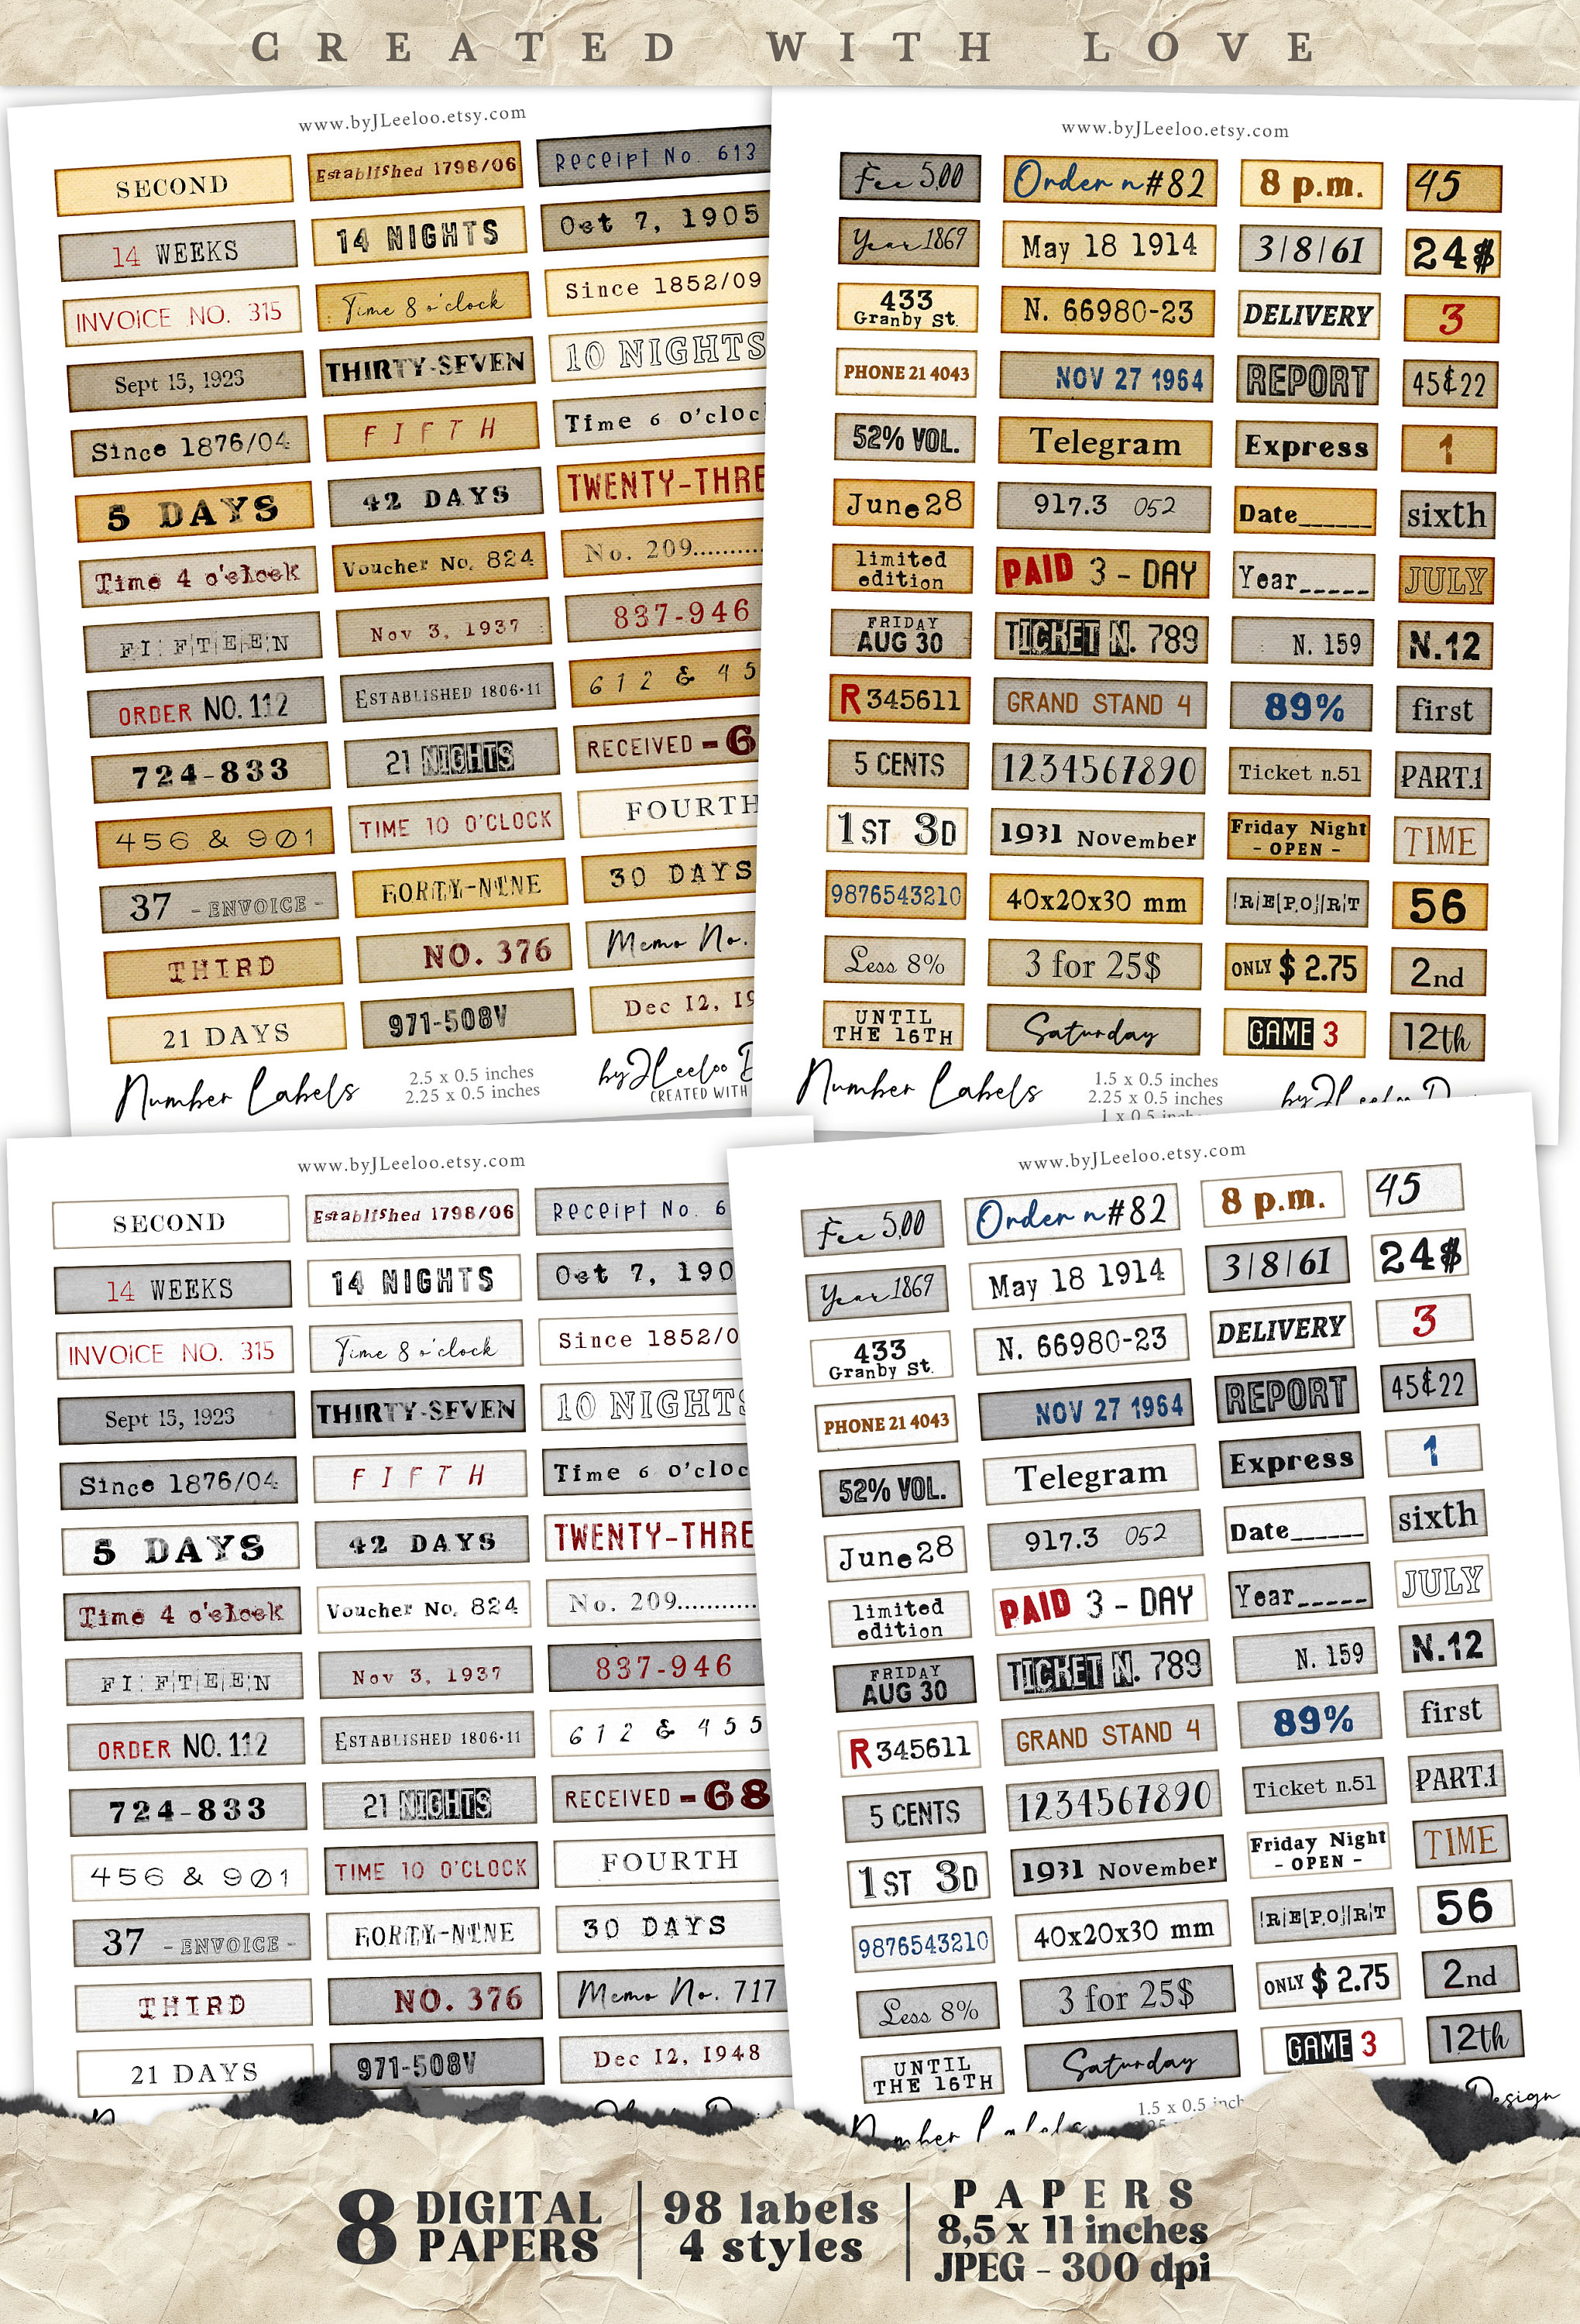 CREATED WITH LOVE
www.byJLeeloo.etsy.com
SECOND
Established 1798/06
Receipt No. 613
14 WEEKS
14 NIGHTS
Oct 7, 1905
INVOICE NO. 315
Time 8 o'clock
Since 1852/09
Sept 15, 1923
THIRTY-SEVEN
10 NIGHTS
Since 1876/04
FIFTH
Time 6 o'cloc
5 DAYS
42 DAYS
TWENTY-THRE
Time 4 o'clock
Voucher No. 824
No. 209..........
FIFTEEN
Nov 3, 1937
837-946
ORDER NO. 112
ESTABLISHED 1806-11
612 & 45
724-833
21 NIGHTS
RECEIVED -6
456 & 901
TIME 10 O'CLOCK
FOURTH
37 - ENVOICE -
FORTY-NINE
30 DAYS
THIRD
NO. 376
Memo No.
21 DAYS
971-508V
Dec 12, 19
Number Labels
2.5 x 0.5 inches
2.25 x 0.5 inches
byJLeeloo D
CREATED WITH
www.byJLeeloo.etsy.com
Fee 5,00
Order n#82
8 p.m.
45
Year 1869
May 18 1914
3/8/61
24$
433
Granby St.
N. 66980-23
DELIVERY
3
PHONE 21 4043
NOV 27 1964
REPORT
45¢22
52% VOL.
Telegram
Express
1
June 28
917.3 052
Date______
sixth
limited
edition
PAID 3 - DAY
Year_____
JULY
FRIDAY
AUG 30
TICKET N. 789
N. 159
N.12
R 345611
GRAND STAND 4
89%
first
5 CENTS
1234567890
Ticket n.51
PART.1
1ST 3D
1931 November
Friday Night
- OPEN -
TIME
9876543210
40x20x30 mm
REPORT
56
Less 8%
3 for 25$
ONLY $ 2.75
2nd
UNTIL
THE 16TH
Saturday
GAME 3
12th
Number Labels
1.5 x 0.5 inches
2.25 x 0.5 inches
1 x 0.5 inch
byJLeeloo D
www.byJLeeloo.etsy.com
SECOND
Established 1798/06
Receipt No. 6
14 WEEKS
14 NIGHTS
Oct 7, 190
INVOICE NO. 315
Time 8 o'clock
Since 1852/0
Sept 15, 1923
THIRTY-SEVEN
10 NIGHTS
Since 1876/04
FIFTH
Time 6 o'cloc
5 DAYS
42 DAYS
TWENTY-THRE
Time 4 o'clock
Voucher No. 824
No. 209..........
FIFTEEN
Nov 3, 1937
837-946
ORDER NO. 112
ESTABLISHED 1806-11
612 & 455
724-833
21 NIGHTS
RECEIVED -68
456 & 901
TIME 10 O'CLOCK
FOURTH
37 - ENVOICE -
FORTY-NINE
30 DAYS
THIRD
NO. 376
Memo No. 717
21 DAYS
971-508V
Dec 12, 1948
www.byJLeeloo.etsy.com
Fee 5,00
Order n#82
8 p.m.
45
Year 1869
May 18 1914
3/8/61
24$
433
Granby St.
N. 66980-23
DELIVERY
3
PHONE 21 4043
NOV 27 1964
REPORT
45¢22
52% VOL.
Telegram
Express
1
June 28
917.3 052
Date______
sixth
limited
edition
PAID 3 - DAY
Year_____
JULY
FRIDAY
AUG 30
TICKET N. 789
N. 159
N.12
R 345611
GRAND STAND 4
89%
first
5 CENTS
1234567890
Ticket n.51
PART.1
1ST 3D
1931 November
Friday Night
- OPEN -
TIME
9876543210
40x20x30 mm
REPORT
56
Less 8%
3 for 25$
ONLY $ 2.75
2nd
UNTIL
THE 16TH
Saturday
GAME 3
12th
Number Labels
1.5 x 0.5 inch
Design
8 DIGITAL
PAPERS
98 labels
4 styles
PAPERS
8,5 x 11 inches
JPEG - 300 dpi